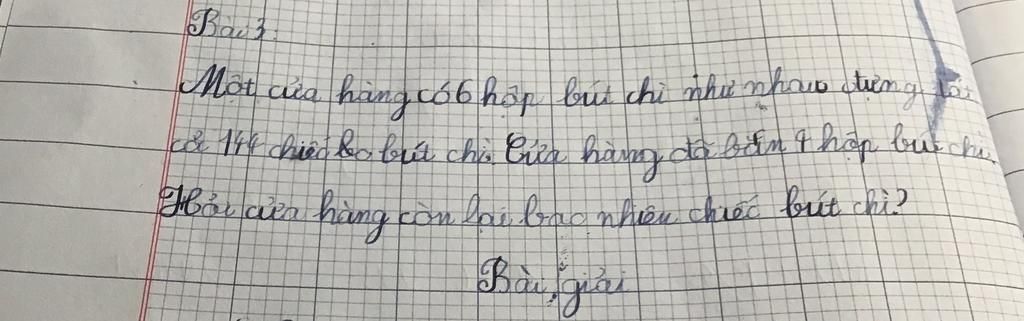 Bài 3:
Một cửa hàng có 6 hộp bút chì như nhau đựng tất
cả 144 chiếc bút chì. Cửa hàng đã bán 4 hộp bút chì.
Hỏi cửa hàng còn lại bao nhiêu chiếc bút chì?
Bài giải